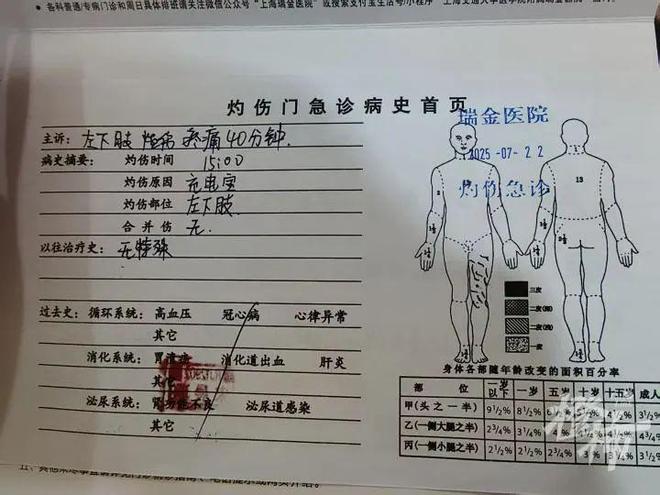 各科普通/专病门诊和周日具体排班请关注微信公众号"上海瑞金医院"或搜索支付宝生活号/小程序"上海交通大学医学院附属瑞金医院"
灼伤门急诊病史首页
瑞金医院
2025-07-22
灼伤急诊
主诉： 左下肢 疼痛 40分钟.
病史摘要： 灼伤时间 15:00
灼伤原因 充电宝
灼伤部位 左下肢.
合并伤 无.
以往治疗史： 无特殊
过去史： 循环系统： 高血压 冠心病 心律异常
其它
消化系统： 胃溃疡 消化道出血 肝炎
其它
泌尿系统： 肾功能不良 泌尿道感染
其它
13
三度
二度(深)
二度(浅)
一度
身体各部随年龄改变的面积百分率
部 位 一岁以下 一岁 五岁 十岁 十五岁 成人
甲(头之一半) 9½% 8½%
乙(一侧大腿之半) 2¾% 3¼% 4%
丙(一侧小腿之半) 2½% 2½% 2¾% 3% 3¼%